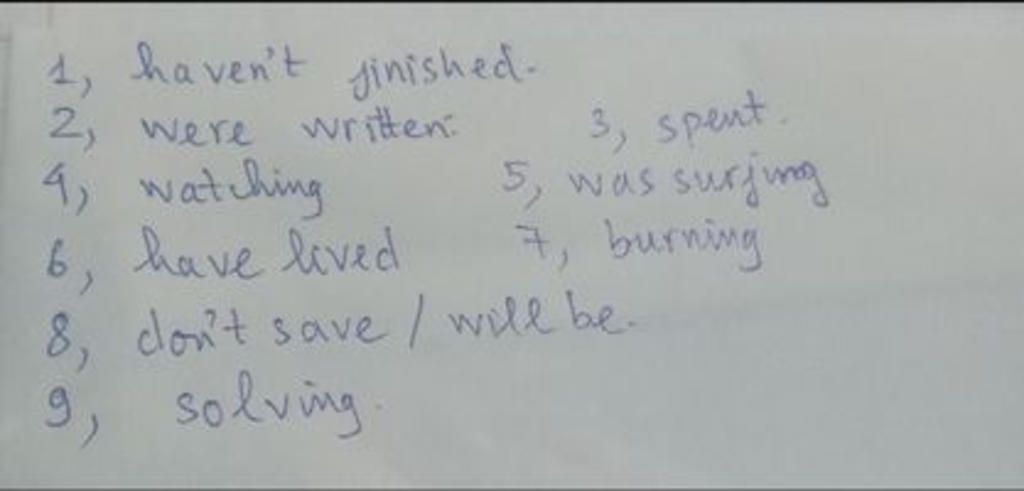 1, haven't finished.
2, were written. 3, spent.
4, watching 5, was surfing
6, have lived 7, burning
8, don't save / will be.
9, solving.